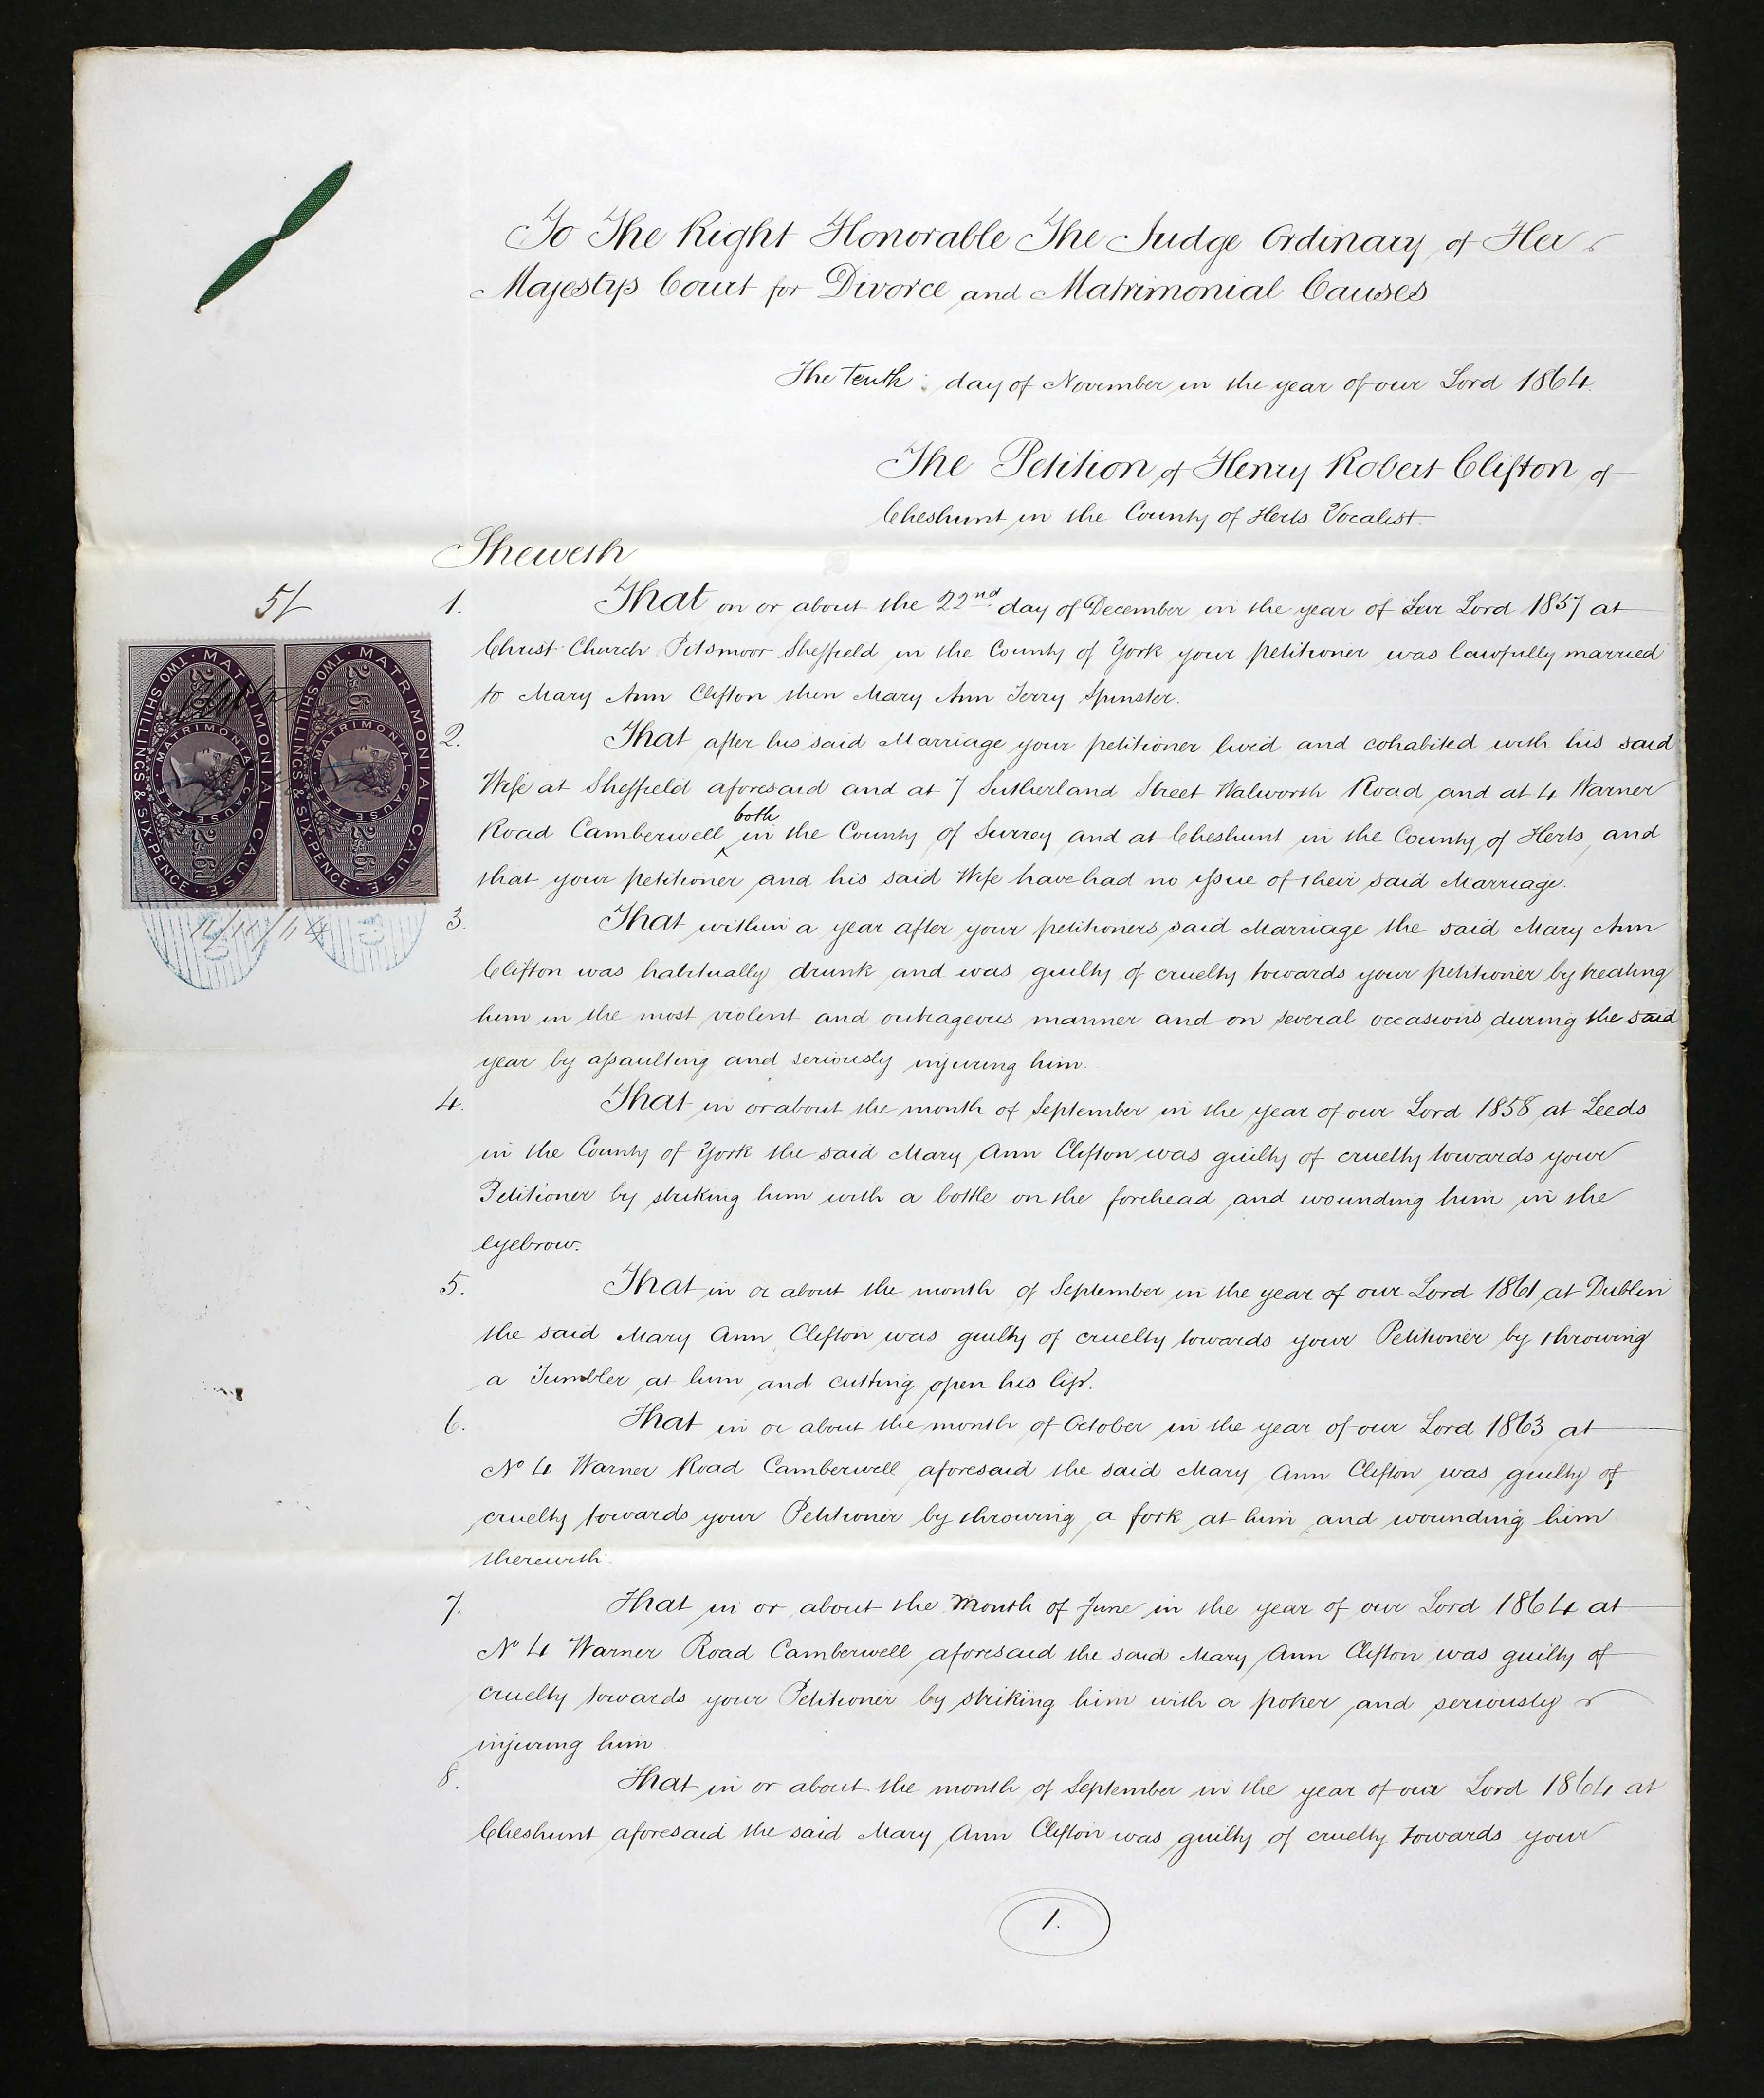 To The Right Honorable The Judge Ordinary of Her
Majestys Court for Divorce and Matrimonial Causes
The Tenth day of November in the year of our Lord 1864.
The Petition of Henry Robert Clifton of
Cheshunt in the County of Herts Vocalist.
Sheweth
5/-
1. That on or about the 22nd day of December in the year of Our Lord 1857 at
Christ Church Pitsmoor Sheffield in the County of York your petitioner was lawfully married
to Mary Ann Clifton then Mary Ann Terry Spinster.
2. That after his said Marriage your petitioner lived and cohabited with his said
Wife at Sheffield aforesaid and at 7 Sutherland Street Walworth Road and at 4 Warner
Road Camberwell both in the County of Surrey and at Cheshunt in the County of Herts and
that your petitioner and his said Wife have had no issue of their said Marriage.
3. That within a year after your petitioners said Marriage the said Mary Ann
Clifton was habitually drunk and was guilty of cruelty towards your petitioner by treating
him in the most violent and outrageous manner and on several occasions during the said
year by assaulting and seriously injuring him.
4. That in or about the month of September in the year of our Lord 1858 at Leeds
in the County of York the said Mary Ann Clifton was guilty of cruelty towards your
Petitioner by striking him with a bottle on the forehead and wounding him in the
eyebrow.
5. That in or about the month of September in the year of our Lord 1861 at Dublin
the said Mary Ann Clifton was guilty of cruelty towards your Petitioner by throwing
a Tumbler at him and cutting open his lip.
6. That in or about the month of October in the year of our Lord 1863 at
No 4 Warner Road Camberwell aforesaid the said Mary Ann Clifton was guilty of
cruelty towards your Petitioner by throwing a fork at him and wounding him
therewith.
7. That in or about the month of June in the year of our Lord 1864 at
No 4 Warner Road Camberwell aforesaid the said Mary Ann Clifton was guilty of
cruelty towards your Petitioner by striking him with a poker and seriously
injuring him
8. That in or about the month of September in the year of our Lord 1864 at
Cheshunt aforesaid the said Mary Ann Clifton was guilty of cruelty towards your
1.
MATRIMONIAL CAUSE
TWO SHILLINGS & SIXPENCE
MATRIMONIAL CAUSE FEE
2s.6d
2s.6d
MATRIMONIAL CAUSE
TWO SHILLINGS & SIXPENCE
MATRIMONIAL CAUSE FEE
2s.6d
2s.6d